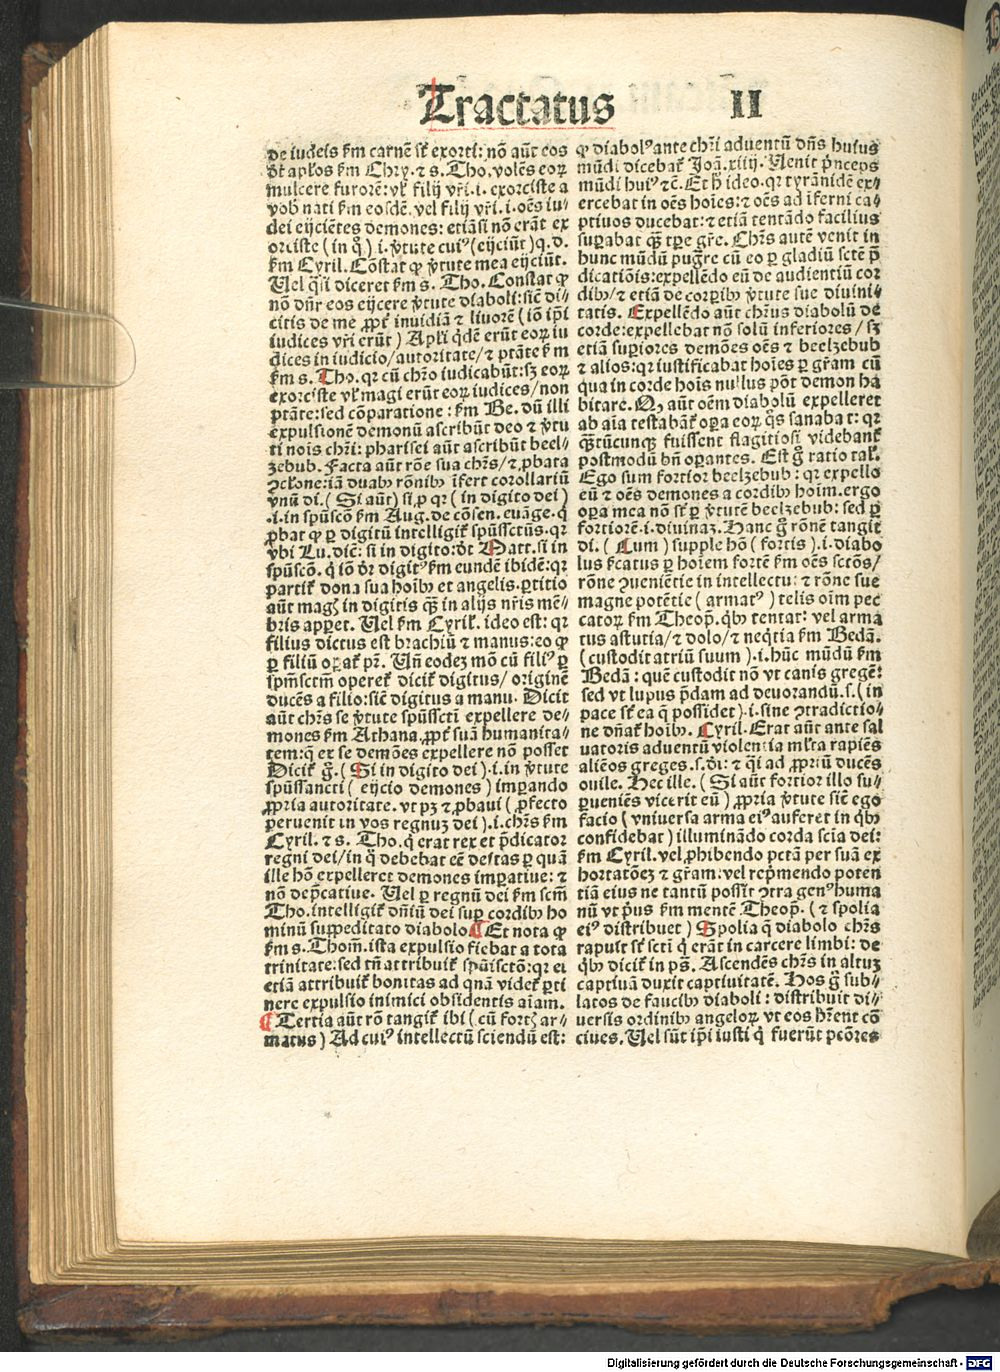 Tractatus II
de iudeis ẜm carnē sūt exorti: nō aūt eos
dr̄t apl'os ẜm Chry. ⁊ s. Tho. volēs eoꝝ
mulcere furorē: vl' filij vr̄i .i. exorciste a
vob' nati ẜm eosdē. vel filij vr̄i .i. oēs iu-
dei eijciētes demones: etiāsi nō erāt ex
orciste (in q̄) .i. v̄tute cui⁹ (eijciūt) q.d.
ẜm Cyril. Cōstat ꝙ v̄tute mea eijciūt.
Uel q̄si diceret ẜm s. Tho. Constat ꝙ
nō dn̄r eos eijcere v̄tute diaboli: sic̄ di-
citis de me ꝓpt̄ inuidiā ⁊ liuorē (iō ip̄i
iudices vr̄i erūt) Apl'i q̄dē erūt eoꝝ iu
dices in iudicio / autoritate / ⁊ ptāte ẜm
ẜm s. Tho. qꝛ cū chro iudicabūt: sꝫ eoꝝ
exorciste vl' magi erūt eoꝝ iudices / non
ptāte: sed cōparatione: ẜm Be. dū illi
expulsionē demonū ascribūt deo ⁊ v̄tu
ti nois chr̄i: pharisei aūt ascribūt beel-
zebub. Facta aūt rōe sua chr̄s / ⁊ ꝓbata
ꝯclone: iā duab' rōnib' īfert corollariū
vnū di. (Si aūt) si ꝓ qꝛ (in digito dei)
.i. in spūscō ẜm Aug. de cōsen. euāge. q̄
ꝓbat ꝙ ꝑ digitū intelligit' spūssctūs. qꝛ
vbi Lu. dic̄: si in digito: dr̄t Matt. si in
spūscō. q̄ iō dr̄ digit⁹ ẜm eundē ibidē: qꝛ
partit' dona sua hoib' et angelis. ꝑtitio
aūt magꝭ in digitis q̄ꝫ in alijs nr̄is mē-
bris apꝑet. Uel ẜm Cyril'. ideo est: qꝛ
filius dictus est brachiū ⁊ manus: eo ꝙ
ꝑ filiū oꝑat' pr̄. Un̄ eodeꝫ mō cū fili⁹ ꝑ
spm̄sctm̄ operet' dicit' digitus / originē
ducēs a filio: sic̄ digitus a manu. Dicit
aūt chr̄s se v̄tute spūssctī expellere de-
mones ẜm Athana. ꝓpt̄ suā humanita-
tem: q̄ ex se demōes expellere nō posset
Dicit' g̃. (Si in digito dei) .i. in v̄tute
spūssancti (eijcio demones) imꝑando
ꝓpria autoritate. vt pꝫ ⁊ ꝓbaui (ꝓfecto
peruenit in vos regnuꝫ dei) .i. chr̄s ẜm
Cyril. ⁊ s. Tho. q̄ erat rex et p̄dicator
regni dei / in q̄ debebat ec̄ destas ꝑ quā
ille hō expelleret demones imꝑatiue: ⁊
nō dep̄catiue. Uel ꝑ regnū dei ẜm scm̄
Tho. intelligit' dn̄iū dei suꝑ cordib' ho
minū suppeditato diabolo. ¶ Et nota ꝙ
ẜm s. Thom̄. ista expulsio fiebat a tota
trinitate: sed tn̄ attribuit' spūisctō: qꝛ ei
etiā attribuit' bonitas ad quā videt' ꝑti
nere expulsio inimici obsidentis aīam.
¶ Tertia aūt rō tangit' ibi (cū fortꝭ ar-
matus) Ad cui⁹ intellectū sciendū est:
ꝙ diabol⁹ ante chr̄i aduentū dn̄s huius
mūdi dicebat' Joā. xiiij. Uenit p̄nceps
mūdi hui⁹ ⁊c̄. Et h̄ ideo. qꝛ tyrānidē ex-
ercebat in oēs hoīes: ⁊ oēs ad īferni ca-
ptiuos ducebat: ⁊ etiā tentādo facilius
suꝑabat q̄ꝫ tꝑe gr̄e. Chr̄s autē venit in
hunc mūdū pugr̄e cū eo ꝑ gladiū sctē p̄
dicatiōis: expellēdo eū de audientiū cor
dib' / ⁊ etiā de corꝑib' v̄tute sue diuini-
tatis. Expellēdo aūt chr̄us diabolū de
corde: expellebat nō solū inferiores / sꝫ
etiā suꝑiores demōes oēs ⁊ beelzebub
⁊ alios: qꝛ iustificabat hoīes ꝑ gr̄am cū
qua in corde hoīs nullus pōt demon ha
bitare. Q' aūt oēm diabolū expelleret
ab aīa testabāt' oꝑa eoꝝ q̄s sanabat: qꝛ
q̄ꝫtūcunqꝫ fuissent flagitiosi videbant'
postmodū bn̄ oꝑantes. Est g̃ ratio tal'.
Ego sum fortior beelzebub: qꝛ expello
eū ⁊ oēs demones a cordib' hoīm. ergo
oꝑa mea nō st̄ ꝑ v̄tutē beelzebub: sed ꝑ
fortiorē .i. diuinaꝫ. Hanc g̃ rōnē tangit
di. (Cum) supple hō (fortis) .i. diabo
lus ẜcatus ꝑ hoīem fortē ẜm oēs sctōs /
rōne ꝯueniētie in intellectu: ⁊ rōne sue
magne potētie (armat⁹) telis oīm pec
catoꝝ ẜm Theop̄. qb' tentat: vel arma
tus astutia / ⁊ dolo / ⁊ neq̄tia ẜm Bedā.
(custodit atriū suum) .i. hūc mūdū ẜm
Bedā: quē custodit nō vt canis gregē:
sed vt lupus p̄dam ad deuorandū .s. (in
pace st̄ ea q̄ possidet) .i. sine ꝯtradictio-
ne dn̄at' hoīb'. Cyril. Erat aūt ante sal
uatoris aduentū violentia ml'ta rapiēs
aliēos greges .s. dī: ⁊ q̄i ad ꝓpriū ducēs
ouile. Hec ille. (Si aūt fortior illo su-
ꝑueniēs vicerit eū) ꝓpria v̄tute sic̄ ego
facio (vniuersa arma ei⁹ auferet in qb'
confidebat) illuminādo corda scīa dei:
ẜm Cyril. vel ꝓhibendo pctā per suā ex
hortatōeꝫ ⁊ gr̄am: vel rep̄mendo poten
tiā eius ne tantū possit ꝯtra gen⁹ huma
nū vt p̄us ẜm mentē Theop̄. (⁊ spolia
ei⁹ distribuet) Spolia q̄ diabolo chr̄s
rapuit st̄ sctī q̄ erāt in carcere limbi: de
qb' dicit' in ps̄. Ascendēs chr̄s in altuꝫ
captiuā duxit captiuitatē. Hos g̃ sub-
latos de faucib' diaboli: distribuit di-
uersis ordinib' angeloꝝ vt eos hr̄ent cō
ciues. Uel sūt ip̄i iusti q̄ fuerūt pcōres
Digitalisierung gefördert durch die Deutsche Forschungsgemeinschaft - DFG